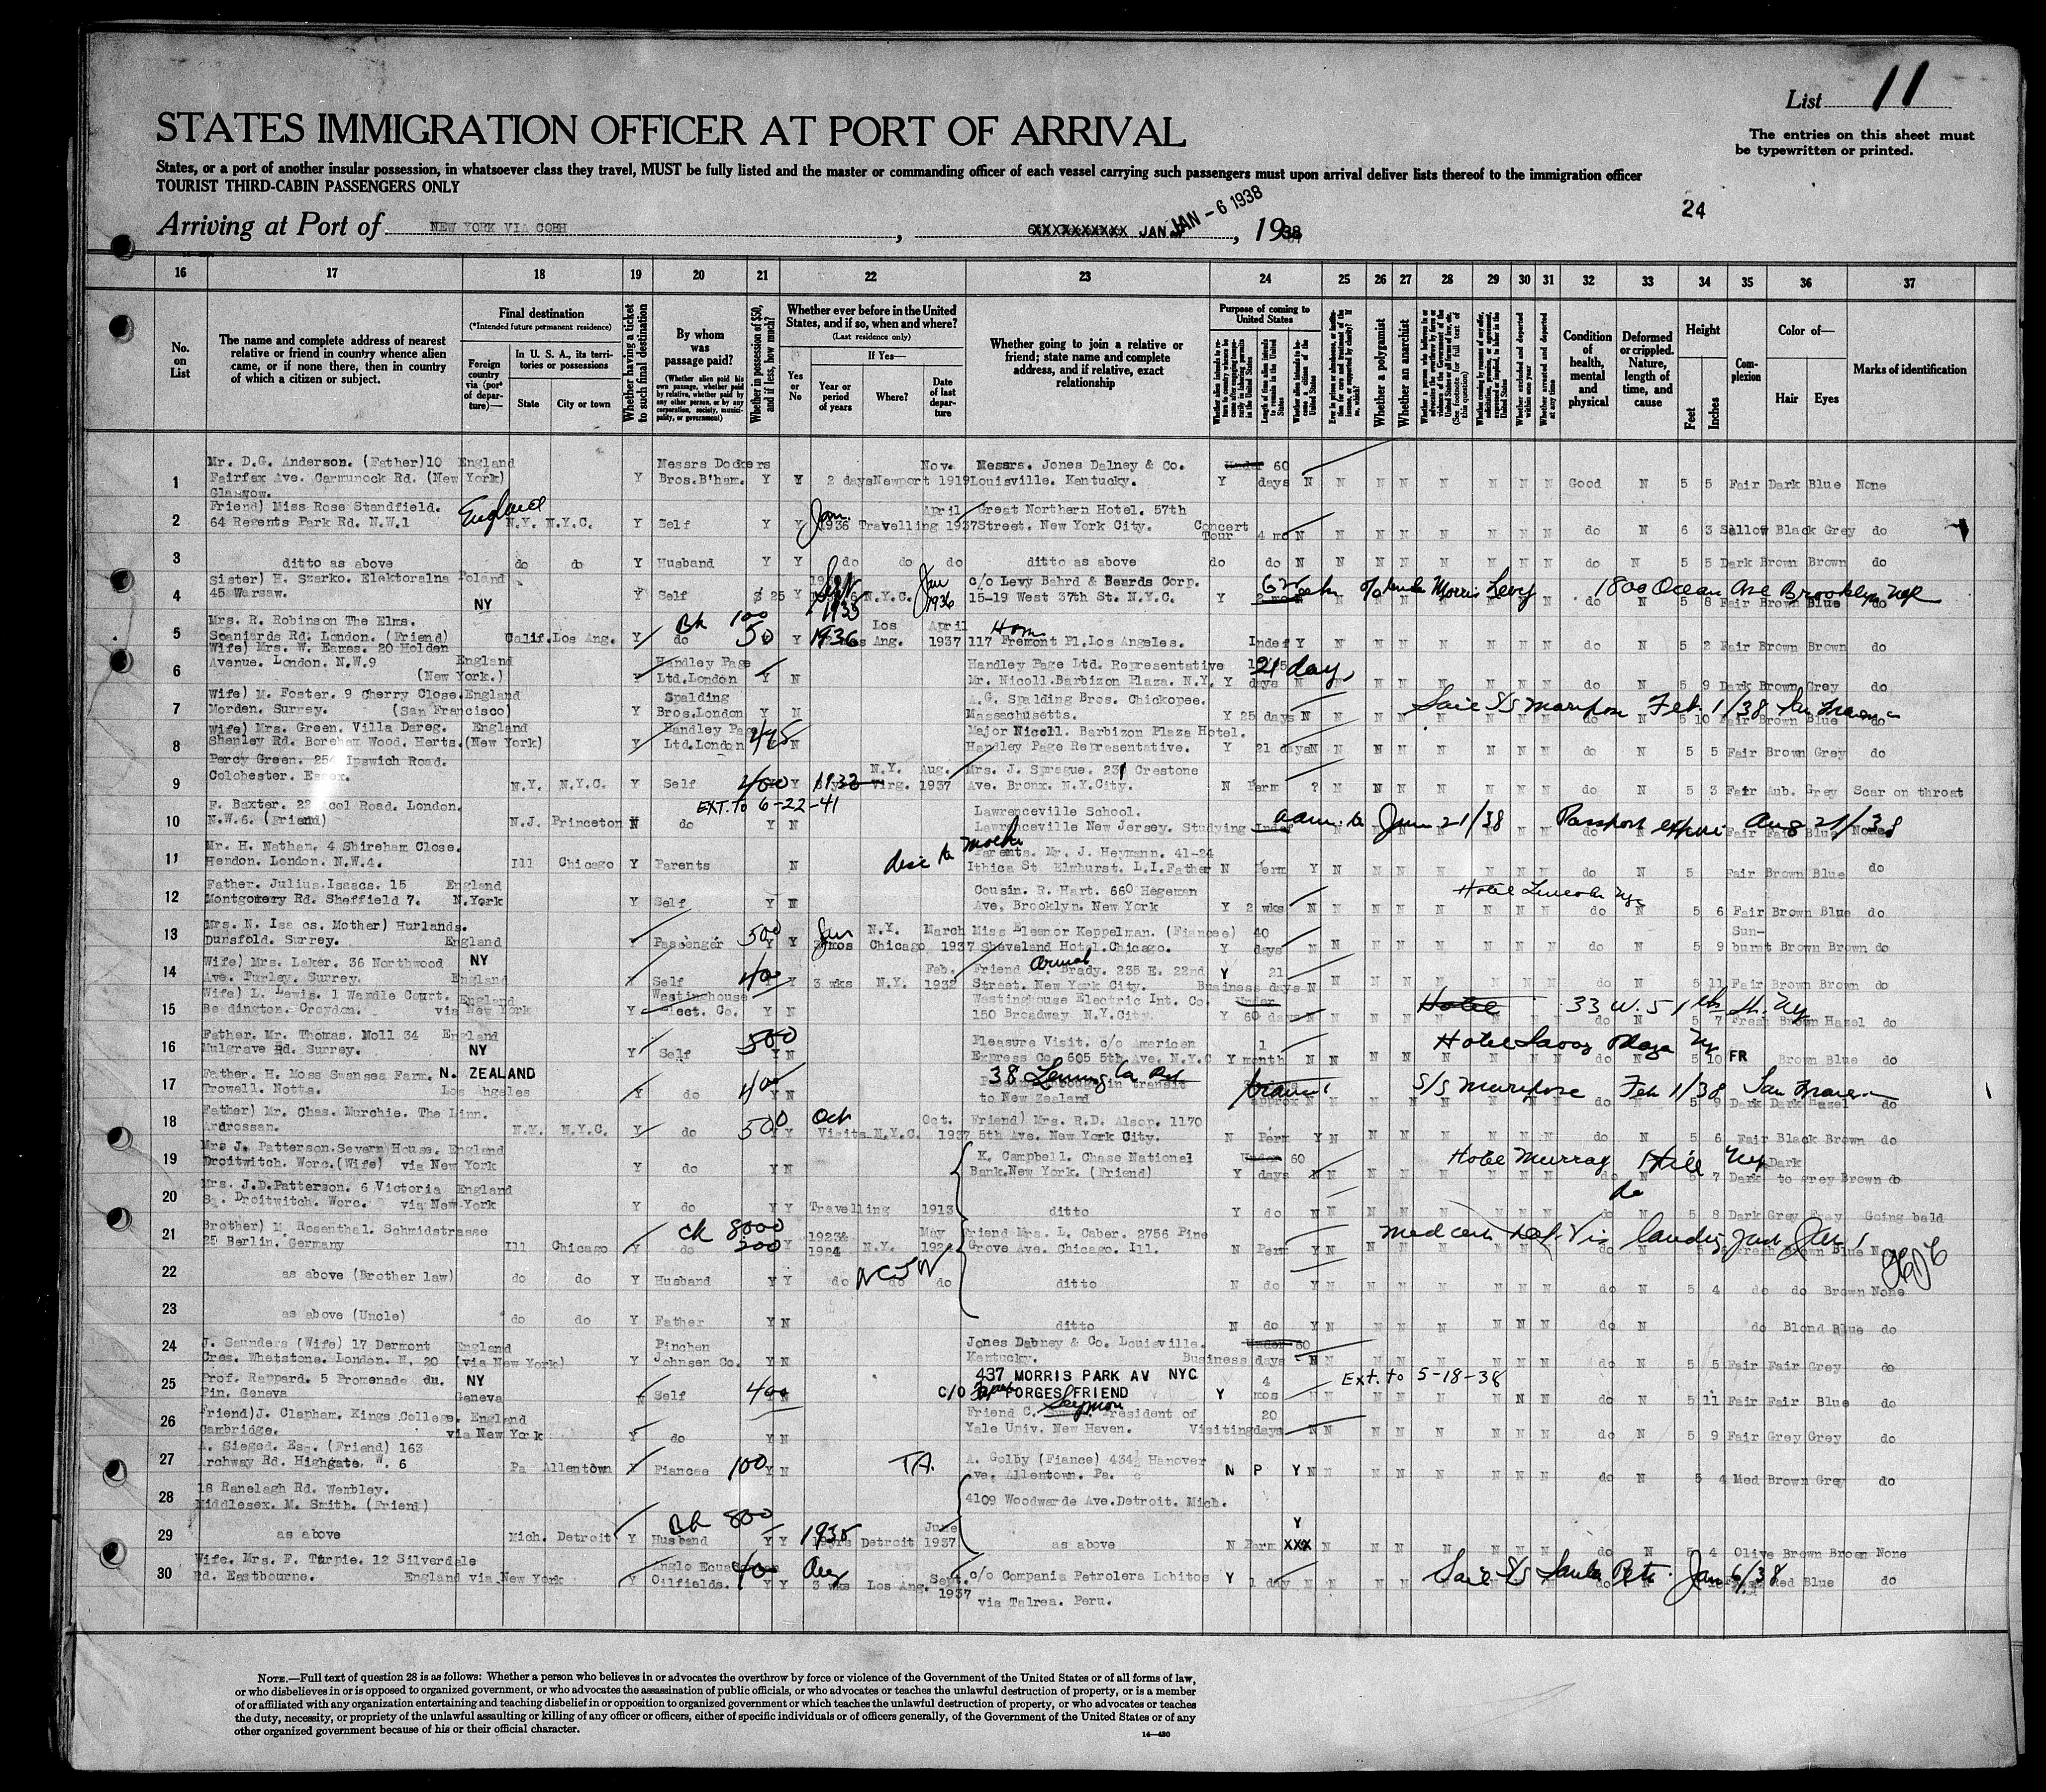 List 11
STATES IMMIGRATION OFFICER AT PORT OF ARRIVAL
The entries on this sheet must
be typewritten or printed.
States, or a port of another insular possession, in whatsoever class they travel, MUST be fully listed and the master or commanding officer of each vessel carrying such passengers must upon arrival deliver lists thereof to the immigration officer
TOURIST THIRD-CABIN PASSENGERS ONLY
24
Arriving at Port of NEW YORK VIA COBH, JAN JAN - 6 1938, 1938
16 17 18 19 20 21 22 23 24 25 26 27 28 29 30 31 32 33 34 35 36 37
No. on List
The name and complete address of nearest relative or friend in country whence alien came, or if none there, then in country of which a citizen or subject.
Final destination
(*Intended future permanent residence)
Foreign country via (port of departure)—
In U. S. A., its territories or possessions
State City or town
Whether having a ticket to such final destination
By whom was passage paid?
(Whether alien paid his own passage, whether paid by relative, whether paid by any other person, or by any corporation, society, municipality, or government)
Whether in possession of $50, and if less, how much?
Whether ever before in the United States, and if so, when and where?
(Last residence only)
Yes or No
If Yes—
Year or period of years Where? Date of last departure
Whether going to join a relative or friend; state name and complete address, and if relative, exact relationship
Purpose of coming to United States
Length of time alien intends to remain in the United States
Whether a polygamist
Whether an anarchist
Whether excluded and deported within one year
Whether arrested and deported at any time
Condition of health, mental and physical
Deformed or crippled. Nature, length of time, and cause
Height
Feet Inches
Complexion
Color of—
Hair Eyes
Marks of identification
1 Mr. D.G. Anderson. (Father)10 England Messrs Dockers Nov. Messrs. Jones Dalney & Co. Under 60
Fairfax Ave. Carmunock Rd. (New York) Y Bros.B'ham. Y Y 2 days Newport 1919 Louisville. Kentucky. Y days N N N N N N N N Good N 5 5 Fair Dark Blue None
Glasgow.
2 Friend) Miss Rose Standfield. England Jan. April Great Northern Hotel. 57th
64 Regents Park Rd. N.W.1 N.Y. N.Y.C. Y Self Y Y 1936 Travelling 1937 Street. New York City. Concert Tour 4 mo N N N N N N N N do N 6 3 Sallow Black Grey do
3 ditto as above do do Y Husband Y Y do do do ditto as above do do N N N N N N N N do N 5 5 Dark Brown Brown do
4 Sister) H. Szarko. Elektoralna Poland Sept Jan c/o Levy Bahrd & Beards Corp. Morris Levy 1800 Ocean Ave Brooklyn NY
45 Warsaw. NY Y Self $ 25 Y 1935 N.Y.C. 1936 15-19 West 37th St. N.Y.C. Y do N 5 8 Fair Brown Blue do
5 Mrs. R. Robinson The Elms. Bk 100 Los April Hom
Scaniards Rd. London. (Friend) Calif. Los Ang. Y do 50 Y 1936 Ang. 1937 117 Fremont Pl.Los Angeles. Indef Y N N N N N N N do N 5 2 Fair Brown Brown do
6 Wife) Mrs. W. Eames. 20 Holden Handley Page Handley Page Ltd. Representative 21 days
Avenue. London. N.W.9 England (New York.) Ltd.London Y N Mr. Nicoll.Barbizon Plaza. N.Y. Y days N N N N N N N N do N 5 9 Dark Brown Grey do
7 Wife) M. Foster. 9 Cherry Close. England Spalding A.G. Spalding Bros. Chickopee. Sail S/S Mariposa Feb 1/38
Morden. Surrey. (San Francisco) Y Bros.London Y N Massachusetts. Y 25 days N N N N N N N N do N 5 10 Fair Brown Blue do
8 Wife) Mrs. Green. Villa Dareg. England Handley Page Major Nicoll. Barbizon Plaza Hotel.
Shenley Rd. Boreham Wood. Herts. (New York) Y Ltd.London 475 N Handley Page Representative. Y 21 days N N N N N N N N do N 5 5 Fair Brown Grey do
9 Percy Green. 254 Ipswich Road. N.Y. Aug. Mrs. J. Sprague. 231 Crestone
Colchester. Essex. N.Y. N.Y.C. Y Self 400 Y 1932 Virg. 1937 Ave. Bronx. N.Y.City. N Perm ? N N N N N N N do N 5 3 Fair Aub. Grey Scar on throat
EXT. to 6-22-41
10 F. Baxter. 22 Acol Road. London. Lawrenceville School. adm. to Jun 21/38 Passport expires Aug 21/38
N.W.6. (Friend) N.J. Princeton N do Y N Lawrenceville New Jersey. Studying Indef Fair Fair Blue None
11 Mr. H. Nathan. 4 Shireham Close. Parents. Mr. J. Heymann. 41-24
Hendon. London. N.W.4. Ill Chicago Y Parents N Ithica St Elmhurst. L.I.Father N Perm Y N N N N N N N do N 5 Fair Brown Blue do
12 Father. Julius.Isaacs. 15 England Cousin. R. Hart. 660 Hegeman Hotel Lincoln NY
Montgomery Rd. Sheffield 7. N.York Y Self Y N Ave, Brooklyn. New York Y 2 wks N N N N N N N N do N 5 6 Fair Brown Blue do
13 Mrs. N. Isaacs. Mother) Hurlands. 500 Jan N.Y. March Miss Eleanor Keppelman. (Fiancee) 40 Sun-
Dunsfold. Surrey. England Y Passenger Y Y 3 mos Chicago 1937 Sheveland Hotel.Chicago. Y days N N N N N N N N do N 5 9 burnt Brown Brown do
14 Wife) Mrs. Laker. 36 Northwood NY Feb. Friend Brady. 235 E. 22nd Y 21
Ave. Purley. Surrey. England Y Self 400 Y 3 wks N.Y. 1932 Street. New York City. Business days N N N N N N N N do N 5 11 Fair Brown Brown do
15 Wife) L. Lewis. 1 Wandle Court. England Westinghouse Westinghouse Electric Int. Co. Under Hotel 33 W. 51th St. NY
Beddington. Croydon. via New York Y Elect. Co. Y N 150 Broadway N.Y.City. Y 60 days N do N 5 7 Fresh Brown Hazel do
16 Father. Mr. Thomas. Noll 34 England 500 Pleasure Visit. c/o American 1 Hotel Savoy Plaza NY
Mulgrave Rd. Surrey. NY Y Self Y N Express Co. 605 5th Ave. N.Y.C Y month N N N N N N N N do N 5 10 FR Brown Blue do
17 Father. H. Moss Swansea Farm. N. ZEALAND 38 in transit S/S Mariposa Feb 1/38
Trowell. Notts. Los Angeles Y do 400 Y N to New Zealand approx N do N 5 9 Dark Dark Hazel do
18 Father) Mr. Chas. Murchie. The Linn. 500 Oct Oct. Friend) Mrs. R.D. Alsop. 1170
Ardrossan. N.Y. N.Y.C. Y do Y Y Visits N.Y.C. 1937 5th Ave. New York City. N Perm Y N N N N N N N do N 5 6 Fair Black Brown do
19 Mrs J. Patterson.Severn House. England K. Campbell. Chase National Under 60 Hotel Murray Hill NY Dark
Droitwitch. Worc.(Wife) via New York Y do Y N Bank.New York. (Friend) Y days N N N N N N N N do N 5 7 Dark to grey Brown do
20 Mrs. J.D.Patterson. 6 Victoria England do
Sq. Droitwitch. Worc. via New York Y do Y Y Travelling 1913 ditto Y do N N N N N N N N do N 5 8 Dark Grey Grey Going bald
21 Brother) M. Rosenthal. Schmidstrasse ck 8000 1923& May Friend Mrs. L. Caber. 2756 Pine
25 Berlin. Germany Ill Chicago Y do 200 Y 1924 N.Y. 1924 Grove Ave. Chicago. Ill. N Perm Y N Fresh Brown Blue None
22 as above (Brother law) do do Y Husband Y Y do do do ditto N do Y N N N N N N N do N 5 4 do do Brown None
23 as above (Uncle) do do Y Father Y N ditto N do Y N N N N N N N do N do Blond Blue do
24 J. Saunders (Wife) 17 Dermont England Pinchen Jones Dabney & Co. Louisville. Under 60
Cres. Whetstone. London. N. 20 (via New York) Y Johnsen Co. Y N Kentucky. Business days N N N N N N N N do N 5 5 Fair Fair Grey do
25 Prof. Rappard. 5 Promenade du. NY 437 MORRIS PARK AV NYC 4 Ext. to 5-18-38
Pin. Geneva Geneva Y Self 400 c/o FRIEND Y mos N N N N N N N N do N 5 11 Fair Fair Blue do
26 Friend)J. Clapham. Kings College. England Friend C. Seymour President of 20
Cambridge. via New York Y do Y N Yale Univ. New Haven. Visiting days N N N N N N N N do N 5 9 Fair Grey Grey do
27 A. Sieged. Esq. (Friend) 163 T.A. A. Golby (Fiance) 434½ Hanover
Archway Rd. Highgate. W. 6 Pa Allentown Y Fiancee 100 Y N Ave. Allentown. Pa. N P Y N N N N N N N do N 5 4 Med Brown Grey do
28 18 Ranelagh Rd. Wembley.
Middlesex. M. Smith. (Friend) 4109 Woodwarde Ave.Detroit. Mich.
29 Bk 800 June Y
as above Mich. Detroit Y Husband Y Y 1935 Detroit 1937 as above N Perm XXX N N N N N N N do N 5 4 Olive Brown Brown None
30 Wife. Mrs. F. Turpie. 12 Silverdale Anglo Ecuadorean 40 Aug Sept. c/o Compania Petrolera Lobitos Y Sail S/S Santa Jan 6/38
Rd. Eastbourne. England via New York Y Oilfields. Y Y 3 wks Los Ang. 1937 via Talrea. Peru. 1 day N Red Blue do
NOTE.—Full text of question 28 is as follows: Whether a person who believes in or advocates the overthrow by force or violence of the Government of the United States or of all forms of law,
or who disbelieves in or is opposed to organized government, or who advocates the assassination of public officials, or who advocates or teaches the unlawful destruction of property, or is a member
of or affiliated with any organization entertaining and teaching disbelief in or opposition to organized government or which teaches the unlawful destruction of property, or who advocates or teaches
the duty, necessity, or propriety of the unlawful assaulting or killing of any officer or officers, either of specific individuals or of officers generally, of the Government of the United States or of any
other organized government because of his or their official character.
14—430